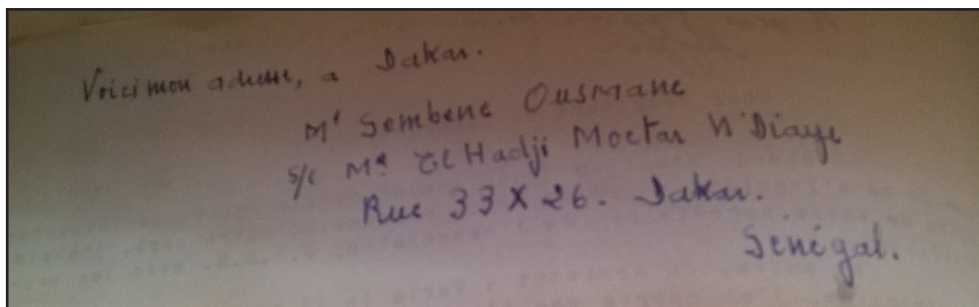 Voici mon adresse, a Dakar.
Mr Sembene Ousmane
s/c Mr El Hadji Moctar N'Diaye
Rue 33 X 26. Dakar.
Sénégal.